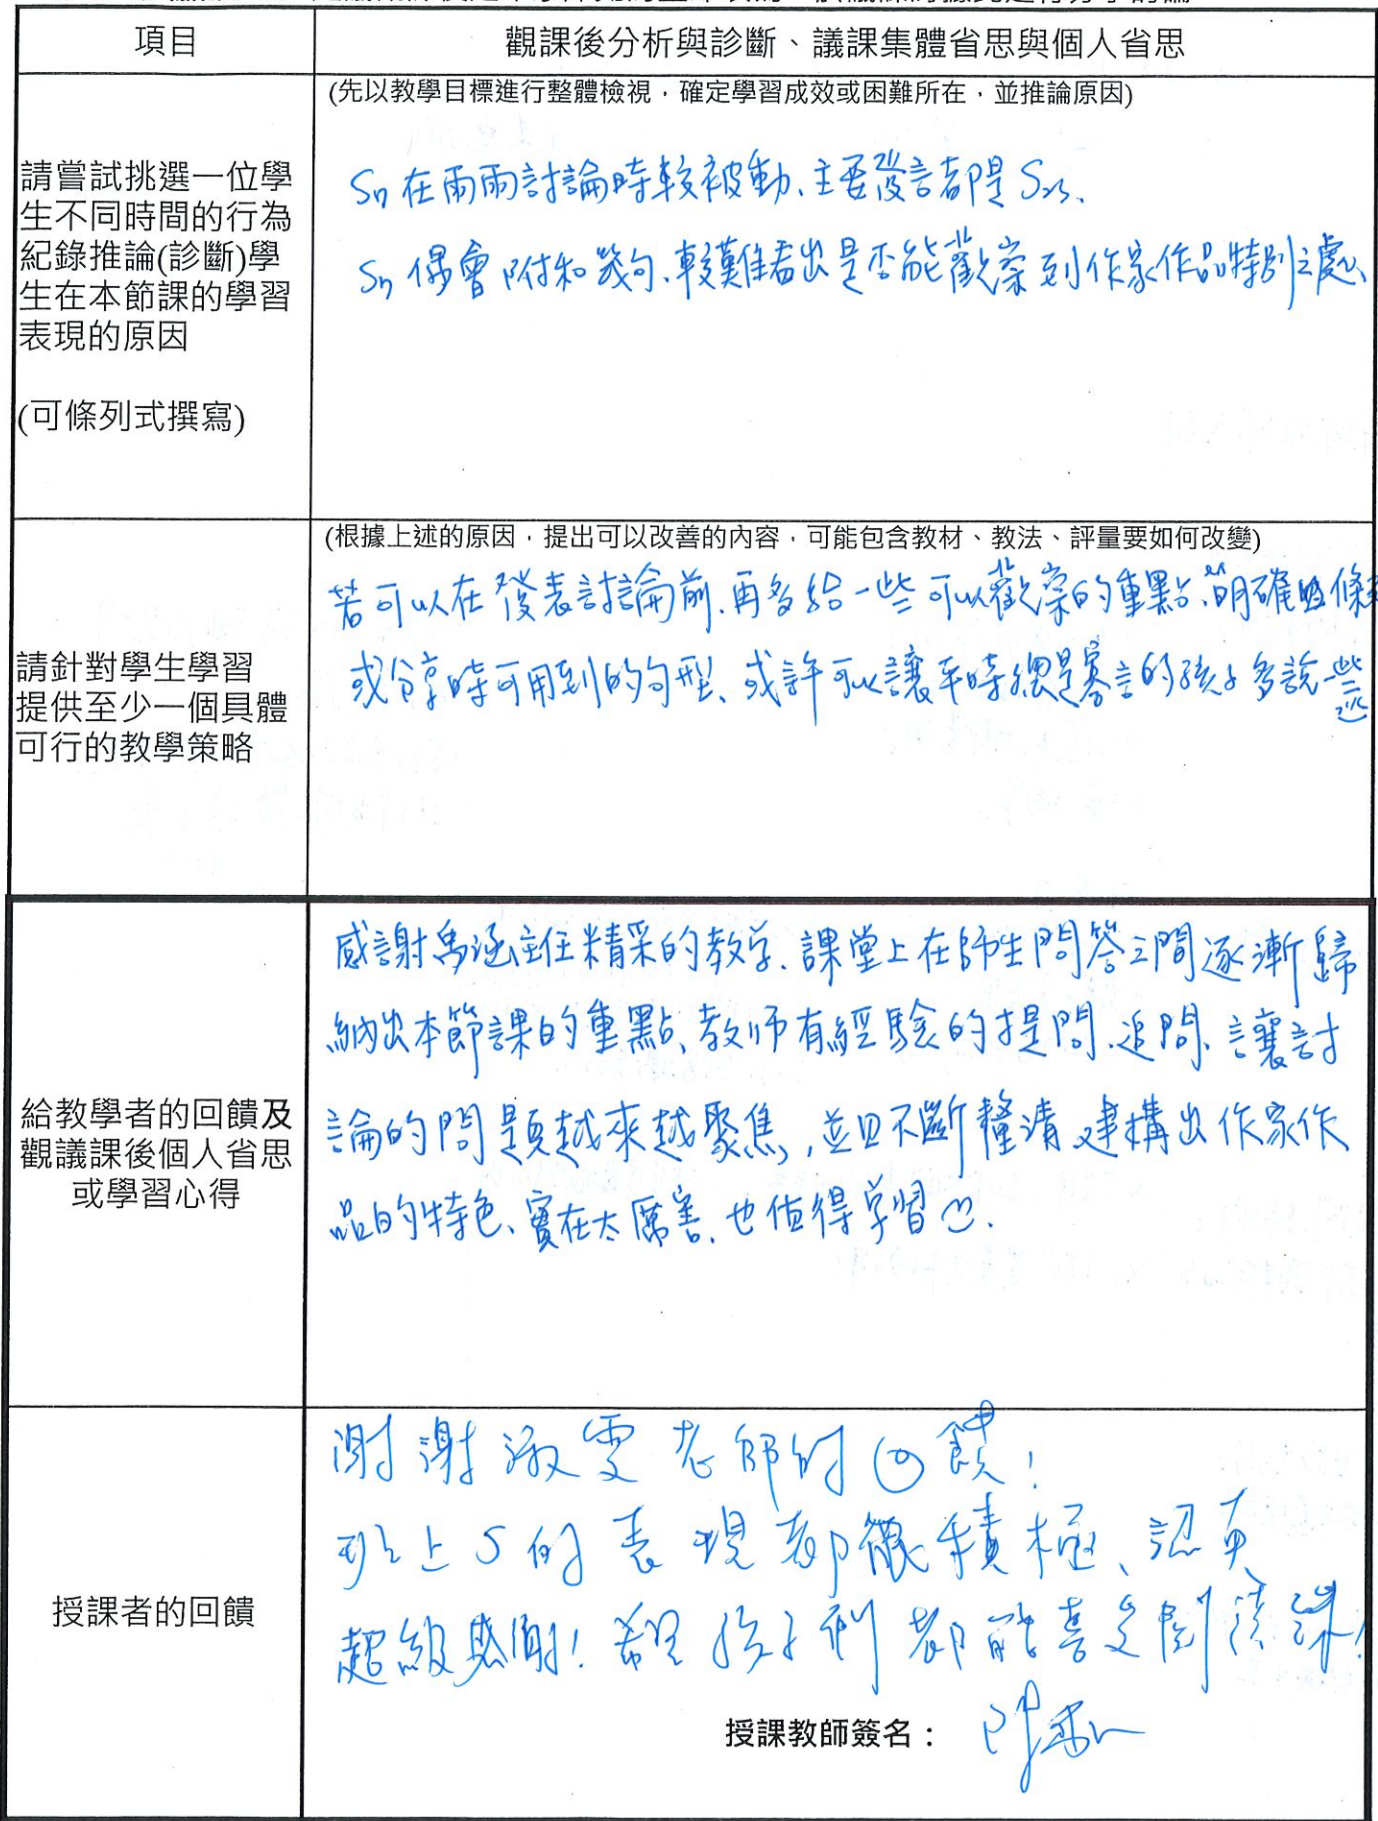 項目
觀課後分析與診斷、議課集體省思與個人省思
請嘗試挑選一位學
生不同時間的行為
紀錄推論(診斷)學
生在本節課的學習
表現的原因
(可條列式撰寫)
(先以教學目標進行整體檢視，確定學習成效或困難所在，並推論原因)
在兩兩討論時較被動、主要發言都是S23、
偶會附和幾句、較難看出是否能觀察到作家作品特別之處、
請針對學生學習
提供至少一個具體
可行的教學策略
(根據上述的原因，提出可以改善的內容，可能包含教材、教法、評量要如何改變)
若可以在發表討論前、再多給一些可以觀察的重點、明確
或分享時可用到的句型、或許可以讓平時總是寡言的孩子多說一些
給教學者的回饋及
觀議課後個人省思
或學習心得
感謝 涵主任精采的教学、課堂上在師生問答之間逐漸歸
納出本節課的重點、教师有經驗的提問、追問、讓討
論的問題越來越聚焦，並且不斷釐清建構出作家作
品的特色、實在太厲害、也值得学習
授課者的回饋
謝謝淑雯老師的回饋！
班上S的表現都很積極、認真
超級感謝！希望孩子們都能喜愛閱讀課！
授課教師簽名：